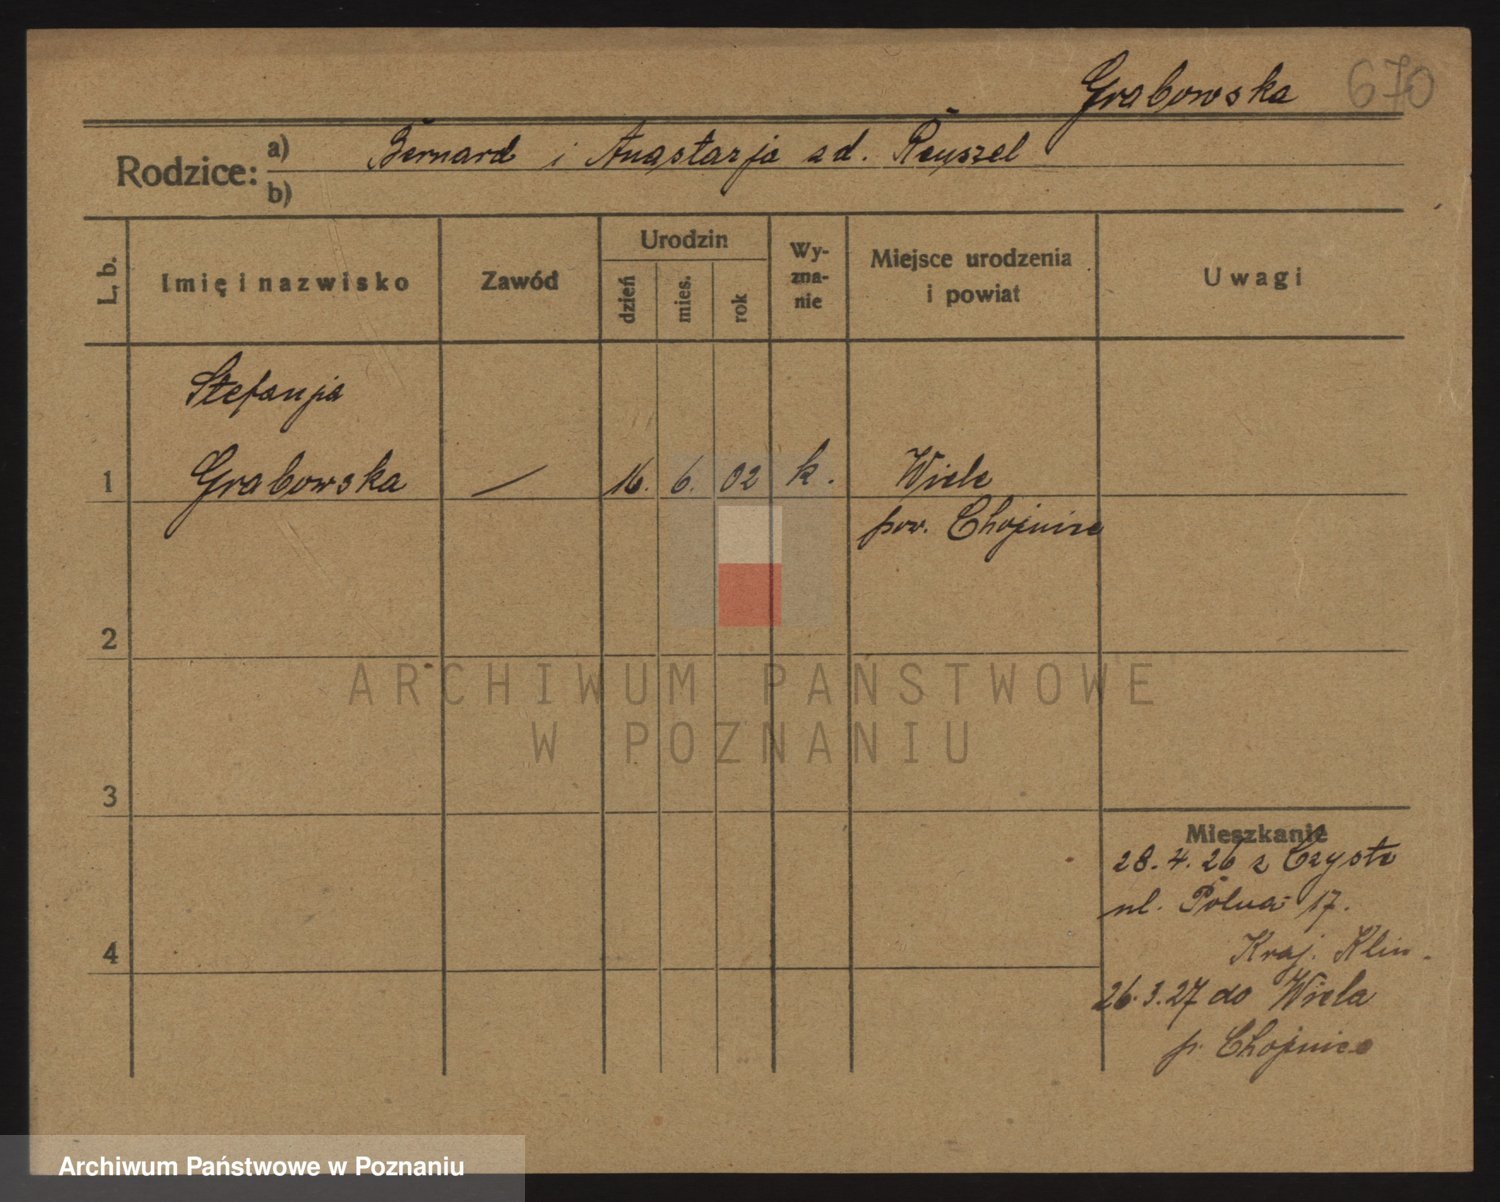 Grabowska 670
Rodzice: a) Bernard i Anastazja zd. Reuszel
b)
L. b. Imię i nazwisko Zawód Urodzin dzień mies. rok Wy-zna-nie Miejsce urodzenia i powiat Uwagi
Stefanja
1 Grabowska — 16. 6. 02 k. Wiele
pow. Chojnice
2
3
4
Mieszkanie
28.4.26 z Czyste
ul. Polna 17.
Kraj. Klin.
26.3.27 do Wiela
p. Chojnice
ARCHIWUM PAŃSTWOWE
W POZNANIU
Archiwum Państwowe w Poznaniu